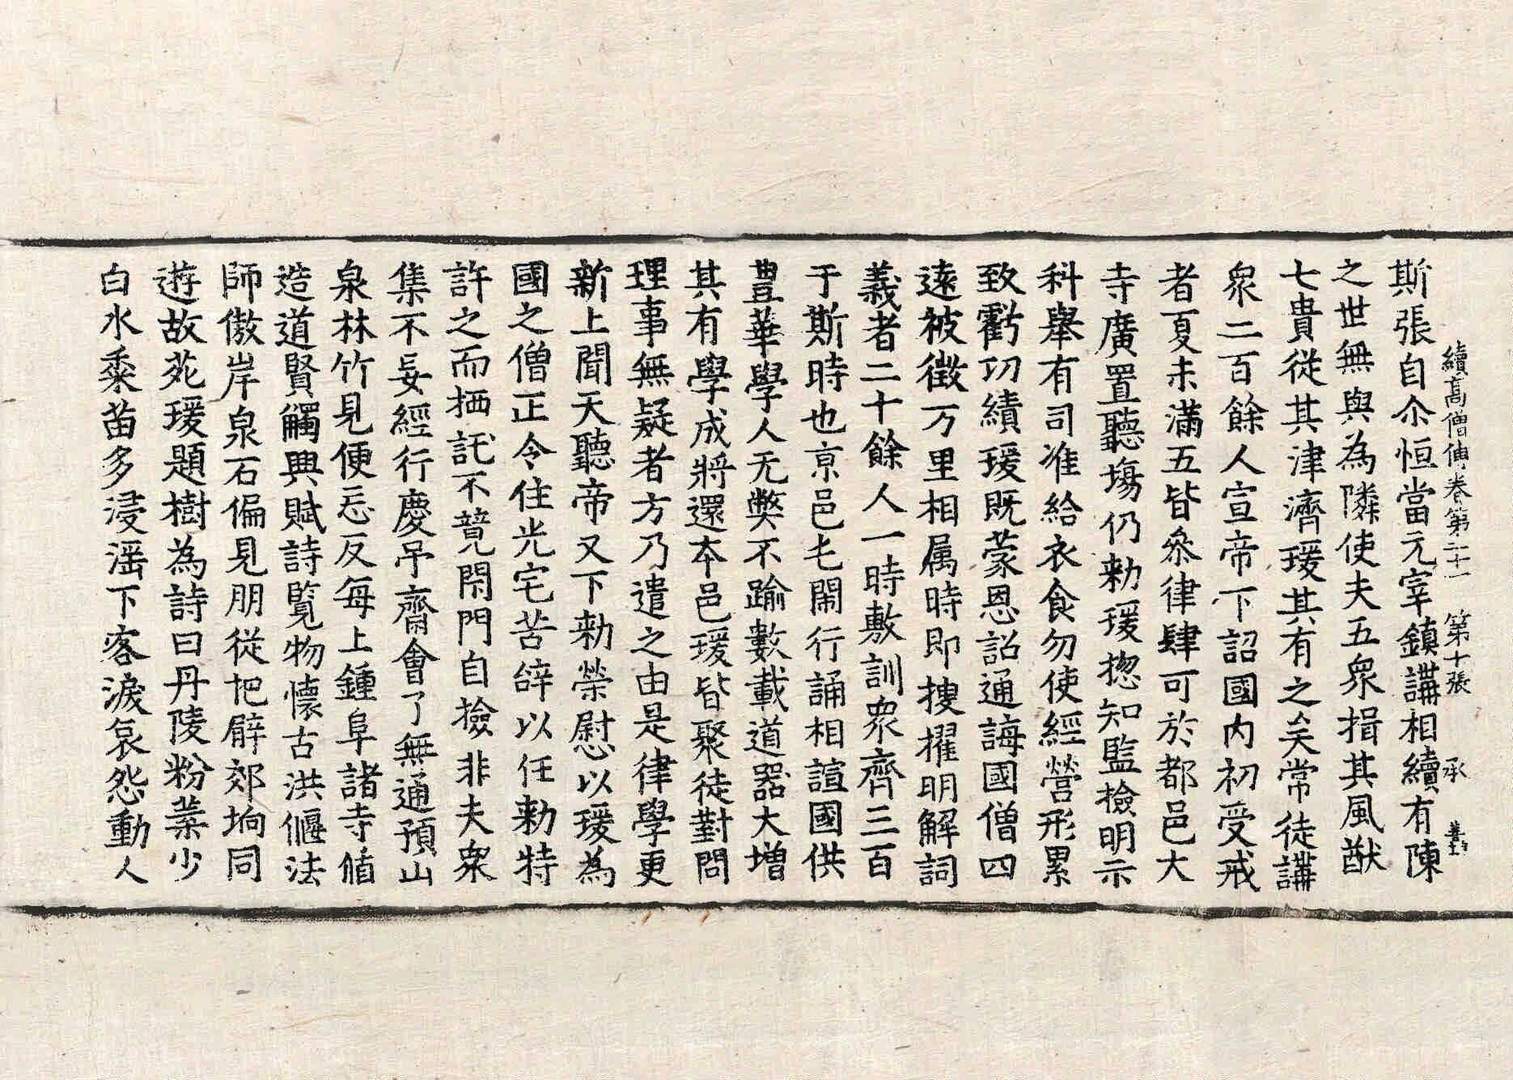 續高僧傳卷第二十一　第十張　承
斯張自尒恒當元宰鎮講相續有陳
之世無與為隣使夫五衆揖其風猷
七貴從其津濟瑗其有之矣常徒講
衆二百餘人宣帝下詔國内初受戒
者夏未滿五皆叅律肆可於都邑大
寺廣置聽塲仍勑瑗揔知監撿明示
科舉有司准給衣食勿使經營形累
致虧功績瑗既蒙恩詔通誨國僧四
遠被徴万里相属時即搜擢明解詞
義者二十餘人一時敷訓衆齊三百
于斯時也亰邑屯閙行誦相諠國供
豊華學人无弊不踰數載道器大增
其有學成將還本邑瑗皆聚徒對問
理事無疑者方乃遣之由是律學更
新上聞天聽帝又下勑榮慰以瑗為
國之僧正令住光宅苦辝以任勑特
許之而栖託不竟閇門自撿非夫衆
集不妄經行慶弔齋會了無通預山
泉林竹見便忘反每上鍾阜諸寺循
造道賢觸興賦詩覧物懷古洪偃法
師傲岸泉石偏見朋從把臂郊坰同
遊故苑瑗題樹為詩曰丹陵粉葉少
白水黍苗多浸滛下客淚哀怨動人